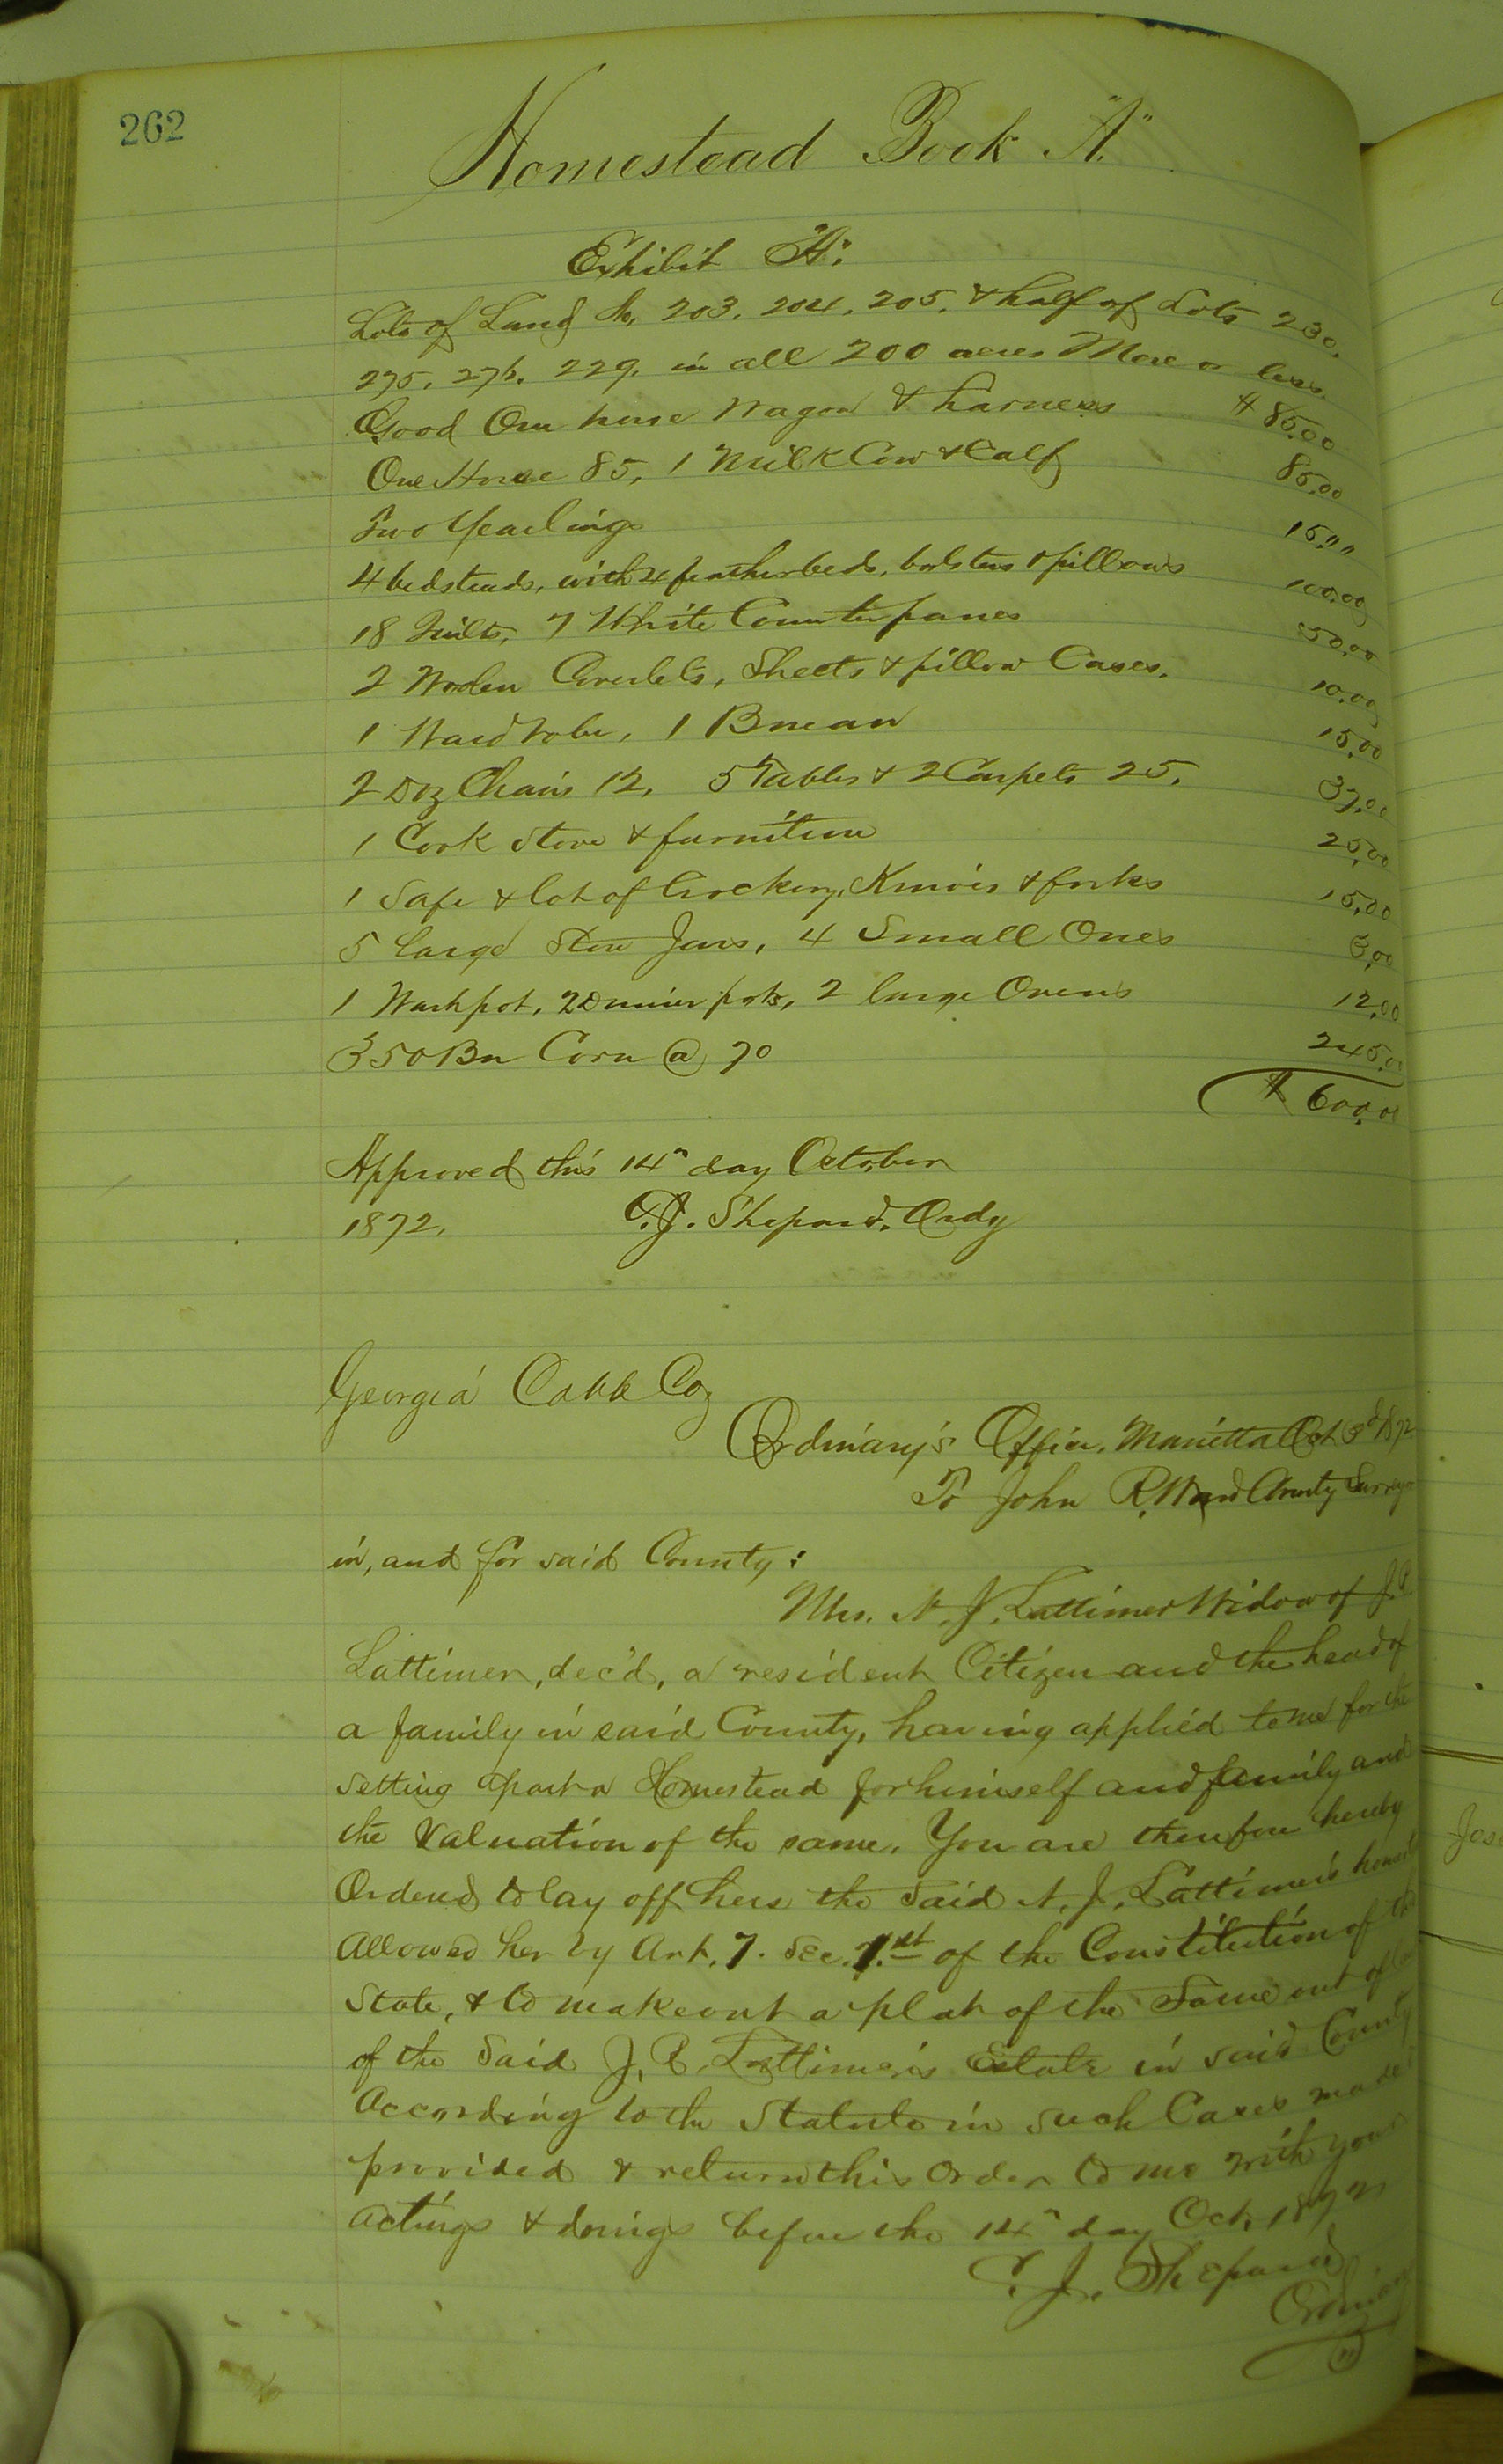 262
Homestead Book "A."
Exhibit "A".
Lots of Land No, 203, 204, 205, & half of Lots 230,
275, 276, 229, in all 200 acres More or less
Good One horse Wagon & harness $85.00
One Horse 85, 1 Milk Cow & Calf 85.00
Two Yearlings 15.00
4 bedsteads, with 4 featherbeds, bolsters & pillows 100.00
18 Quilts, 7 White Counterpanes 50.00
2 Woolen Coverlets, Sheets & pillow Cases, 10.00
1 Wardrobe, 1 Bureau 15.00
2 Doz Chairs 12, 5 Tables & 2 Carpets 25, 37.00
1 Cook Stove & furniture 25.00
1 Safe & lot of Crockery, Knives & forks 15.00
5 large Stone Jars, 4 Small Ones
1 Washpot, 2 Dinner pots, 2 large Ovens 12.00
350 Bu Corn @ 70 245.00
$600.00
Approved this 14" day October
1872. Shepard, Ordy
Georgia Cobb Co,
Ordinary's Office, Marietta Oct 3d 1872
To John R. Ward County Surveyor
in, and for said County:
Mrs. N. J. Lattimer Widow of J.
Lattimer, dec'd, a resident Citizen and the head of
a family in said County, having applied to me for the
setting apart a Homestead for himself and family and
the Valuation of the same. You are therefore hereby
Ordered to lay off hers the said N. J. Lattimer's
allowed her by Art. 7. Sec. 1.st of the Constitution of the
State, & to make out a plat of the Same out of
of the Said J. Lattimer's Estate in said County
According to the Statute in such Cases made &
provided & return this Order to me with your
actings & doings before the 14" day Oct, 1872
J. Shepard
Ordinary